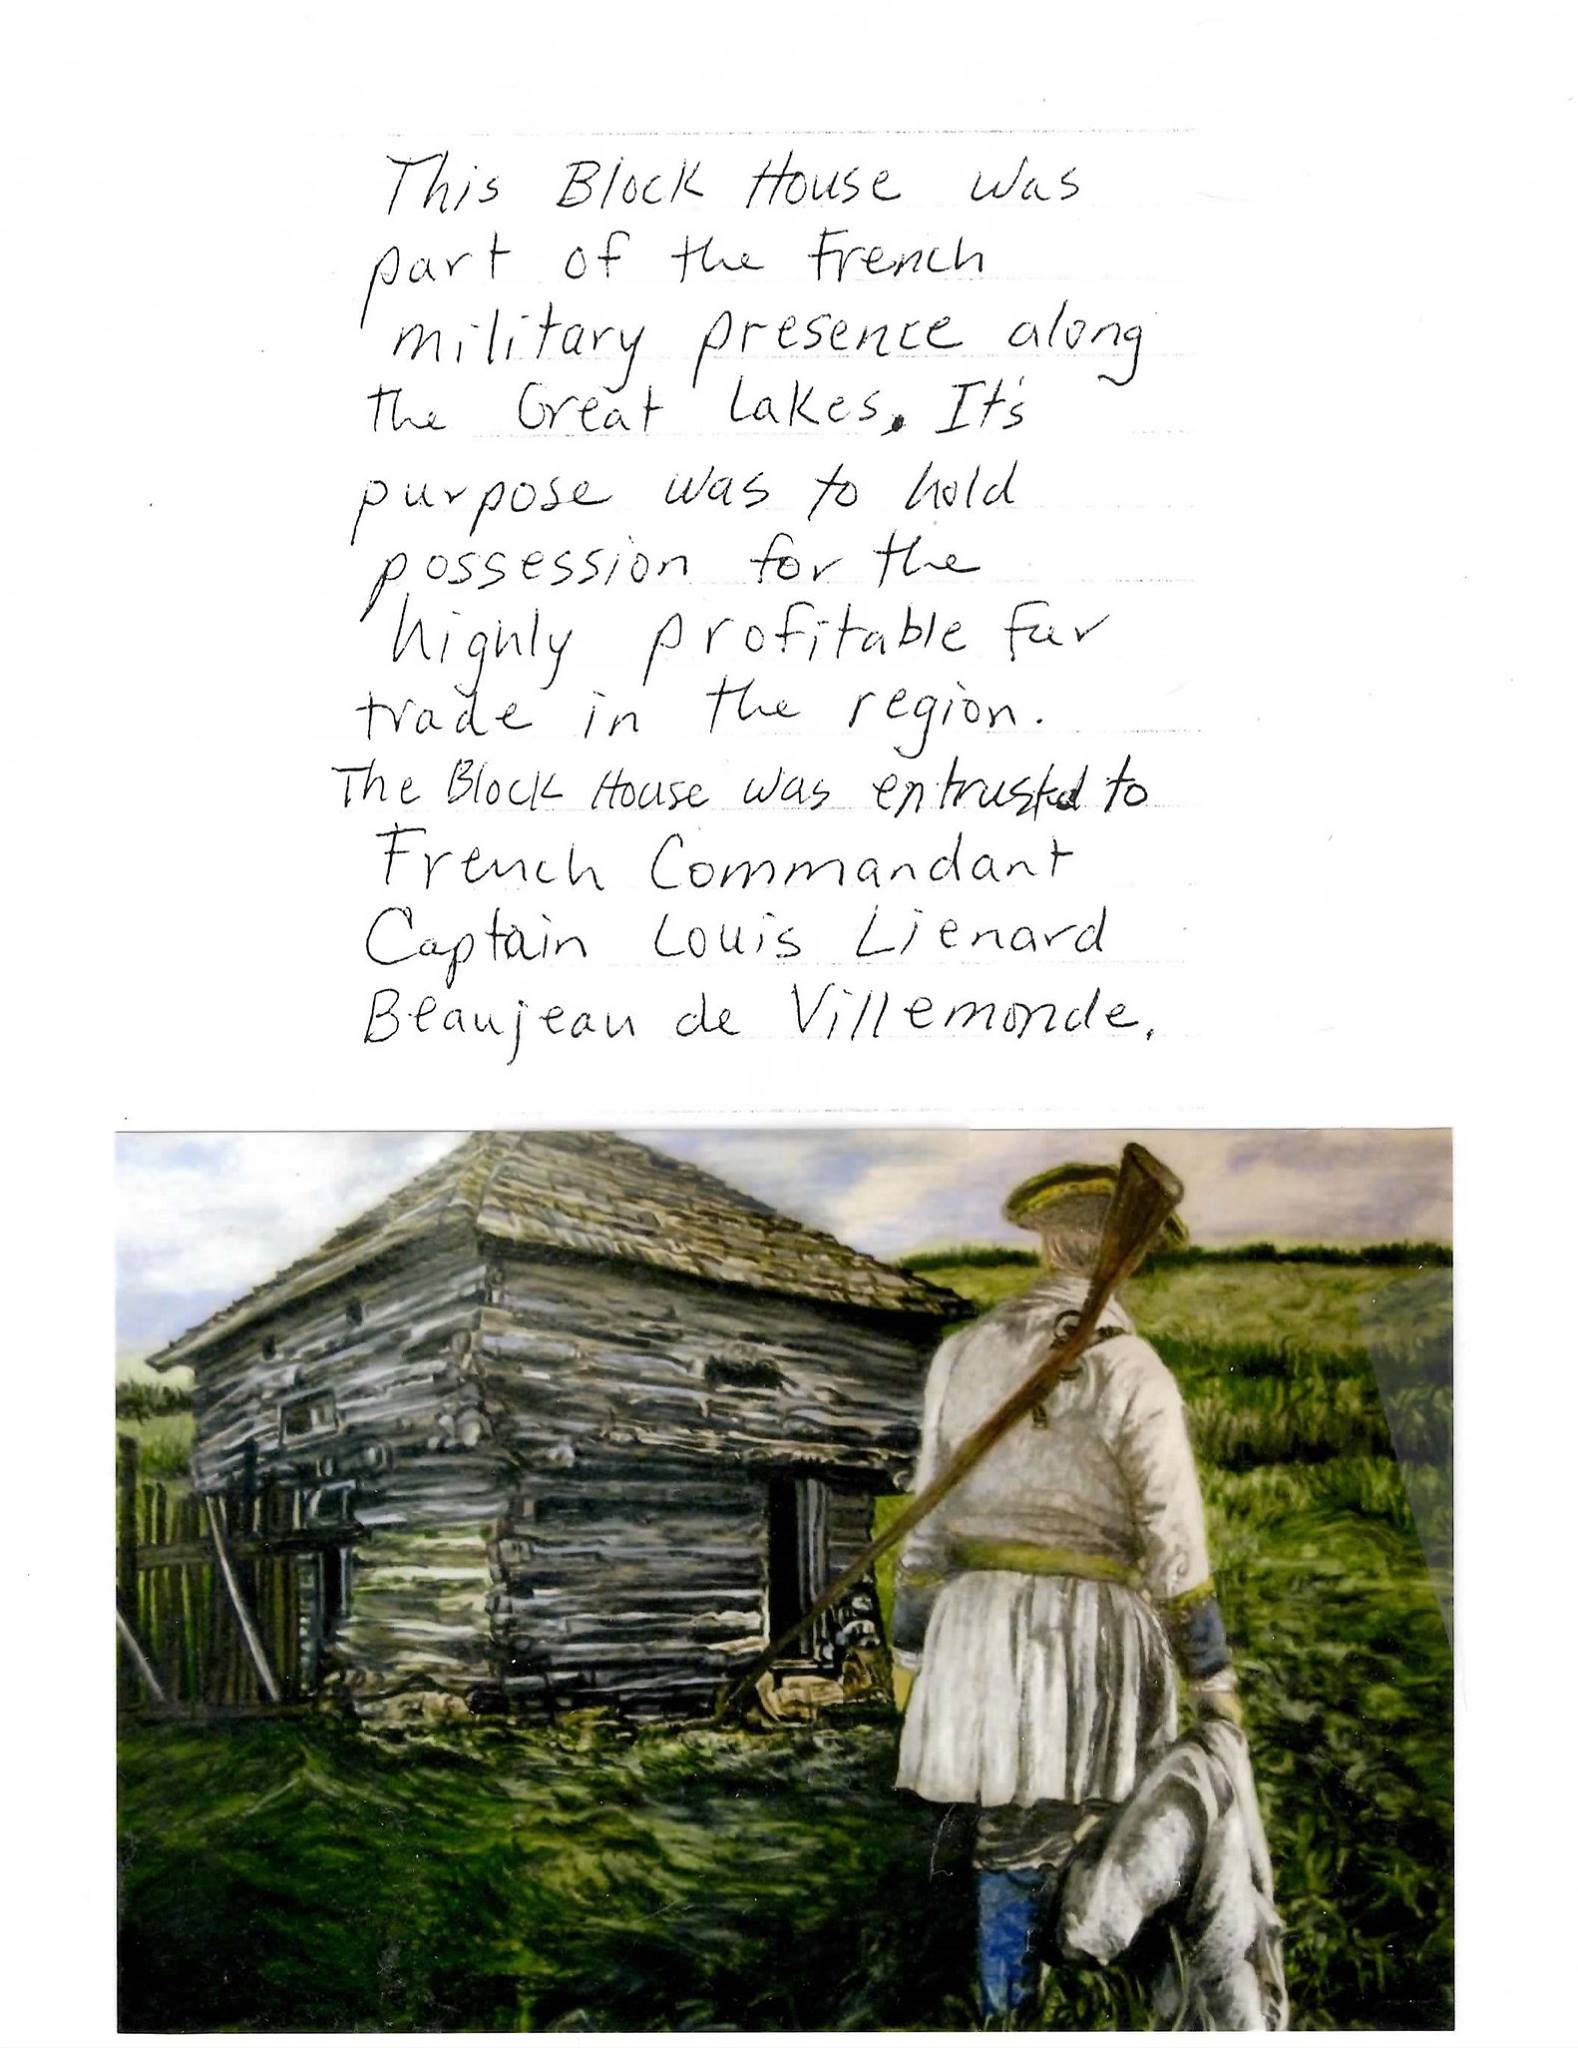 This Block House was
part of the French
military presence along
the Great Lakes. It's
purpose was to hold
possession for the
highly profitable fur
trade in the region.
The Block House was entrusted to
French Commandant
Captain Louis Lienard
Beaujeau de Villemonde.